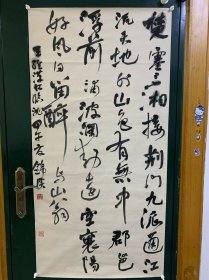 楚塞三湘接荆门九派通江
流天地外山色有无中郡邑
浮前浦波澜动远空襄阳
好风日留醉与山翁
王维汉江临泛